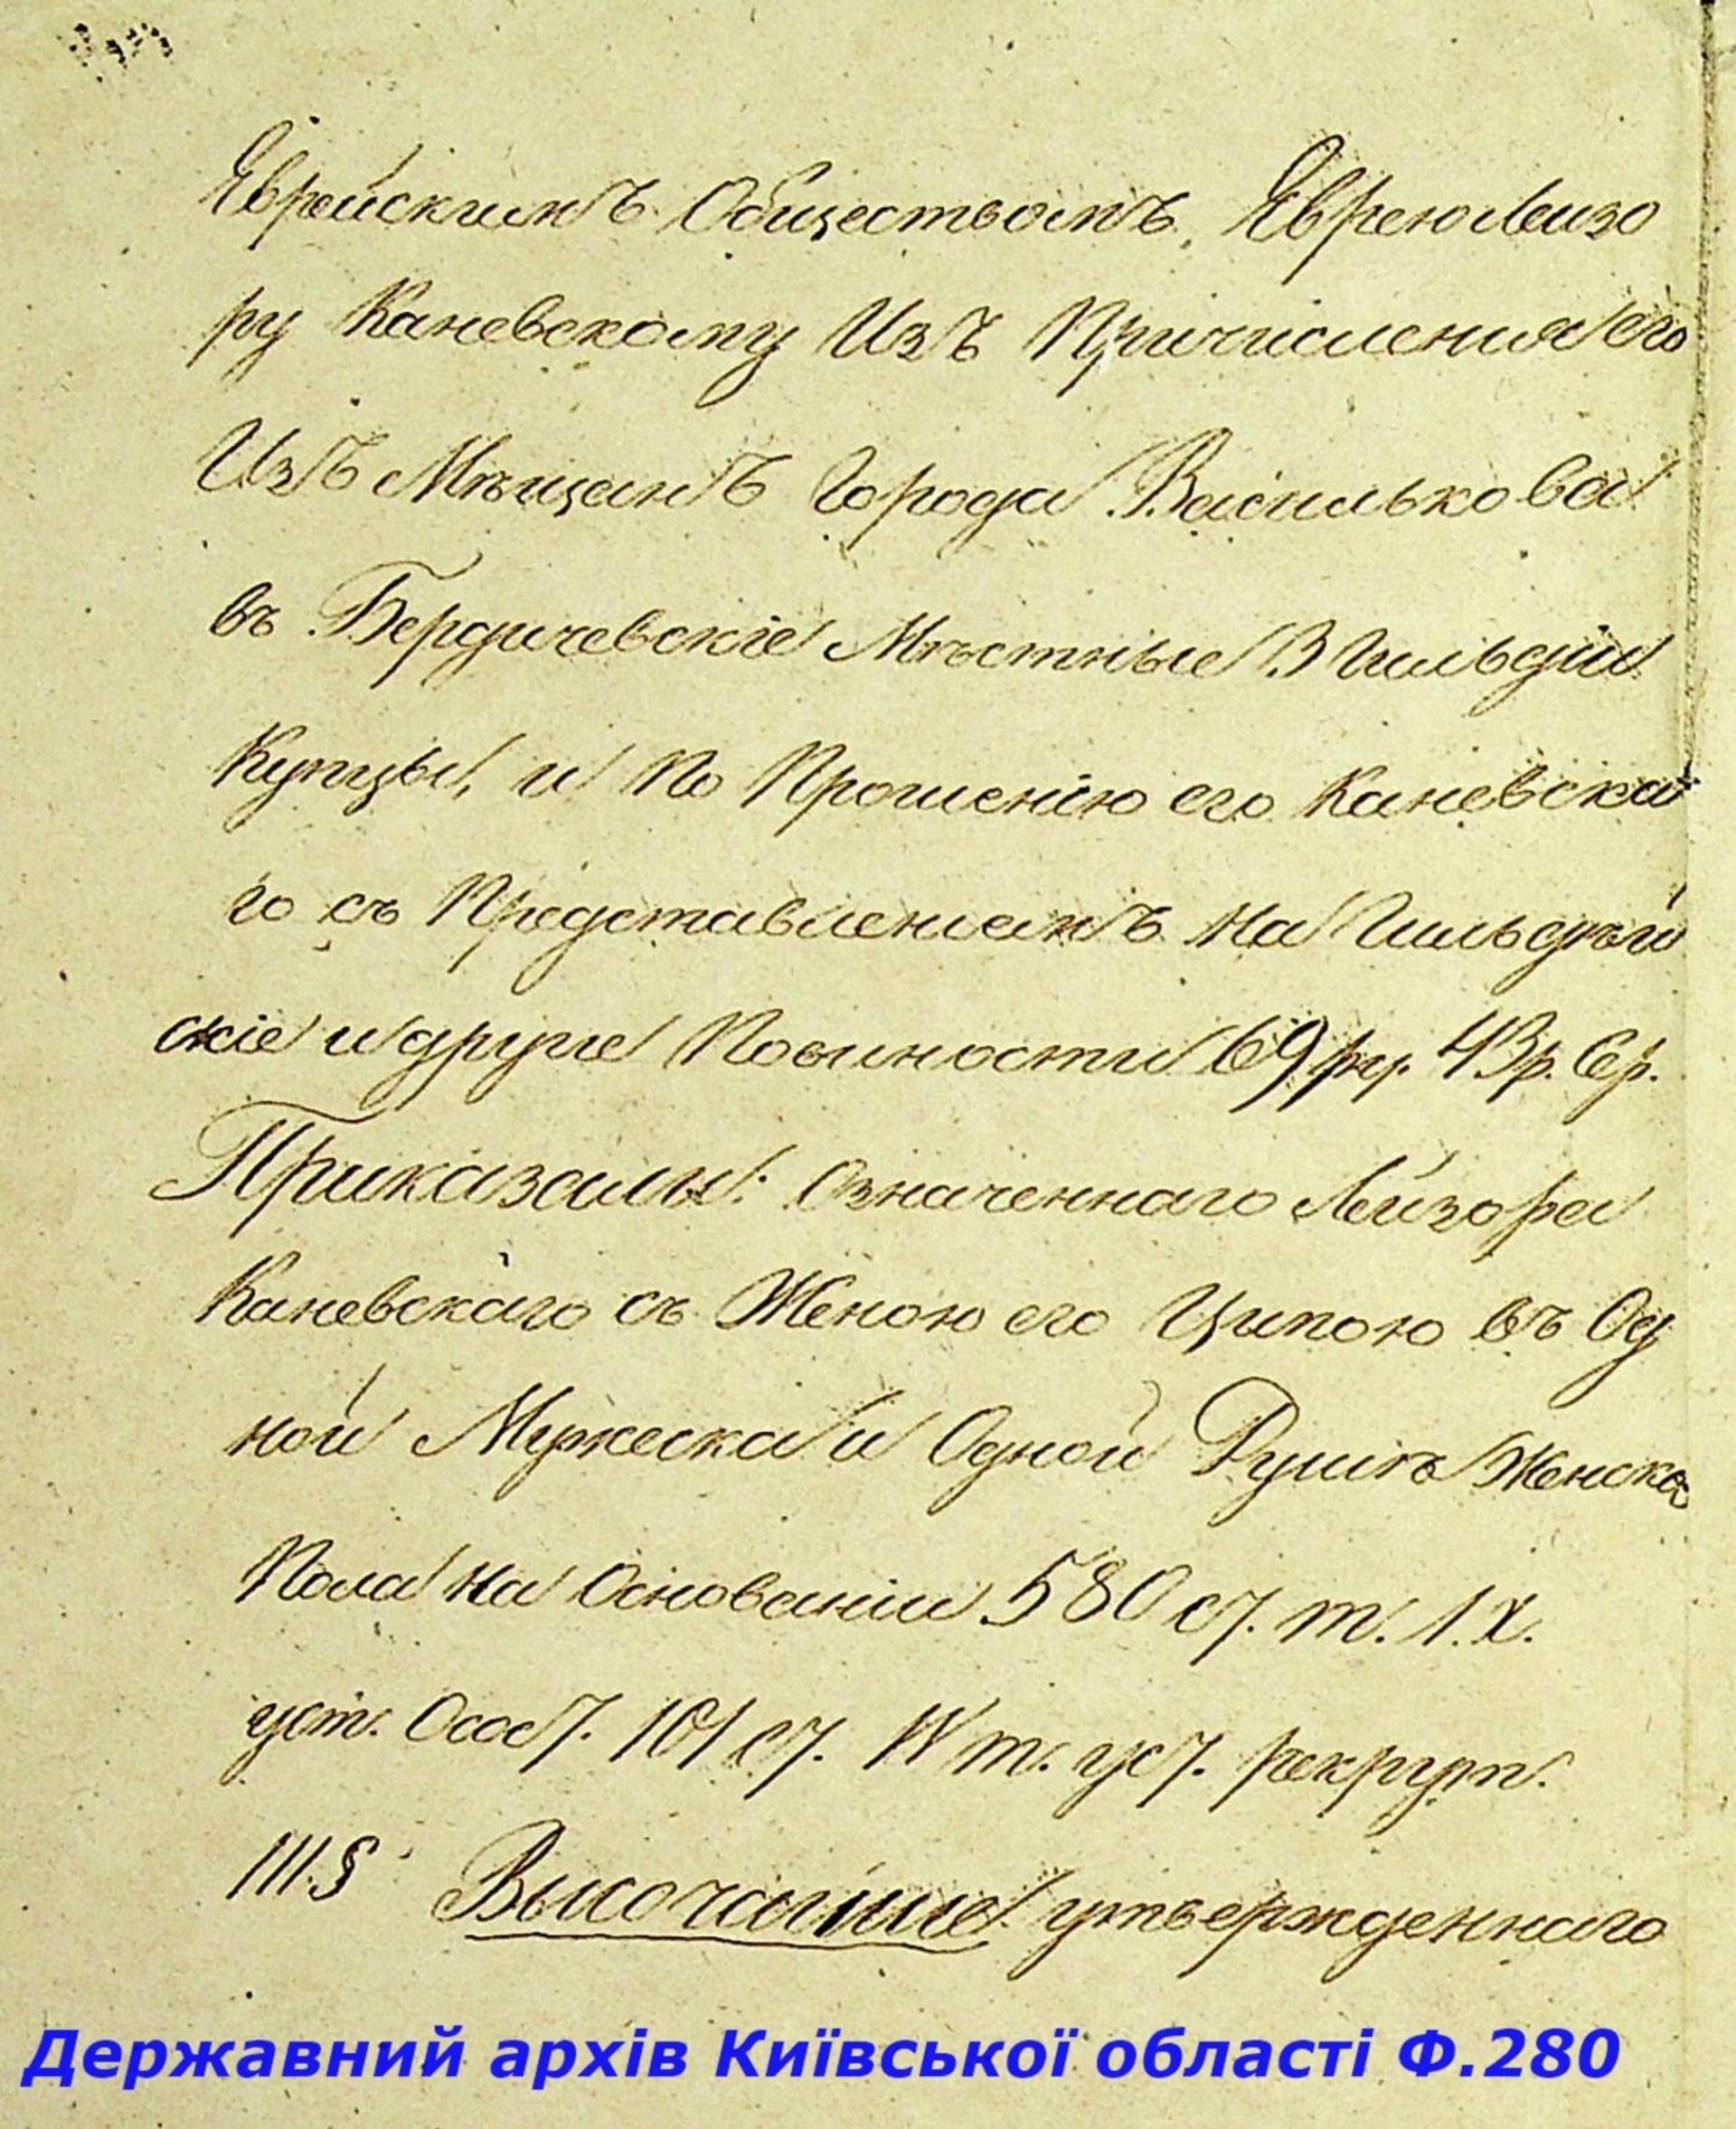 Еврейскимъ Обществомъ, Еврею Лейзо
ру Каневскому Изъ Причисления его
Изъ Мѣщанъ Города Василькова
въ Бердичевскіе Мѣстные 3 Гильдіи
Купцы, и По Прошенію его Каневска
го съ Представлениемъ На Гильдѣй
скіе и другие Повиности 69 ру. 43 р. Сер.
Приказали: Означеннаго Лейзора
Каневскаго съ Женою его Ципою въ Од
ной Мужеска и Одной Душѣ Женска
Пола На Основаніи 580 ст. т. 1. X.
уст. 101 ст. IV т. уст. рекрут.
III.§ Высочайше утвержденнаго
Державний архів Київської області Ф.280